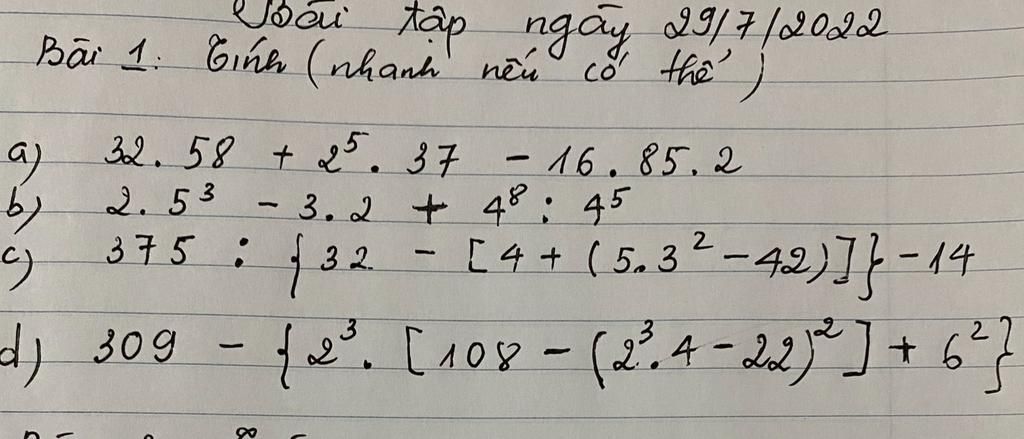 Bài tập ngày 29/7/2022
Bài 1: Tính (nhanh nếu có thể)
a) 32. 58 + 2⁵. 37 - 16. 85. 2
b) 2. 5³ - 3. 2 + 4⁸ : 4⁵
c) 375 : {32 - [4 + (5. 3² - 42)]} - 14
d) 309 - {2³. [108 - (2³. 4 - 22)²] + 6²}